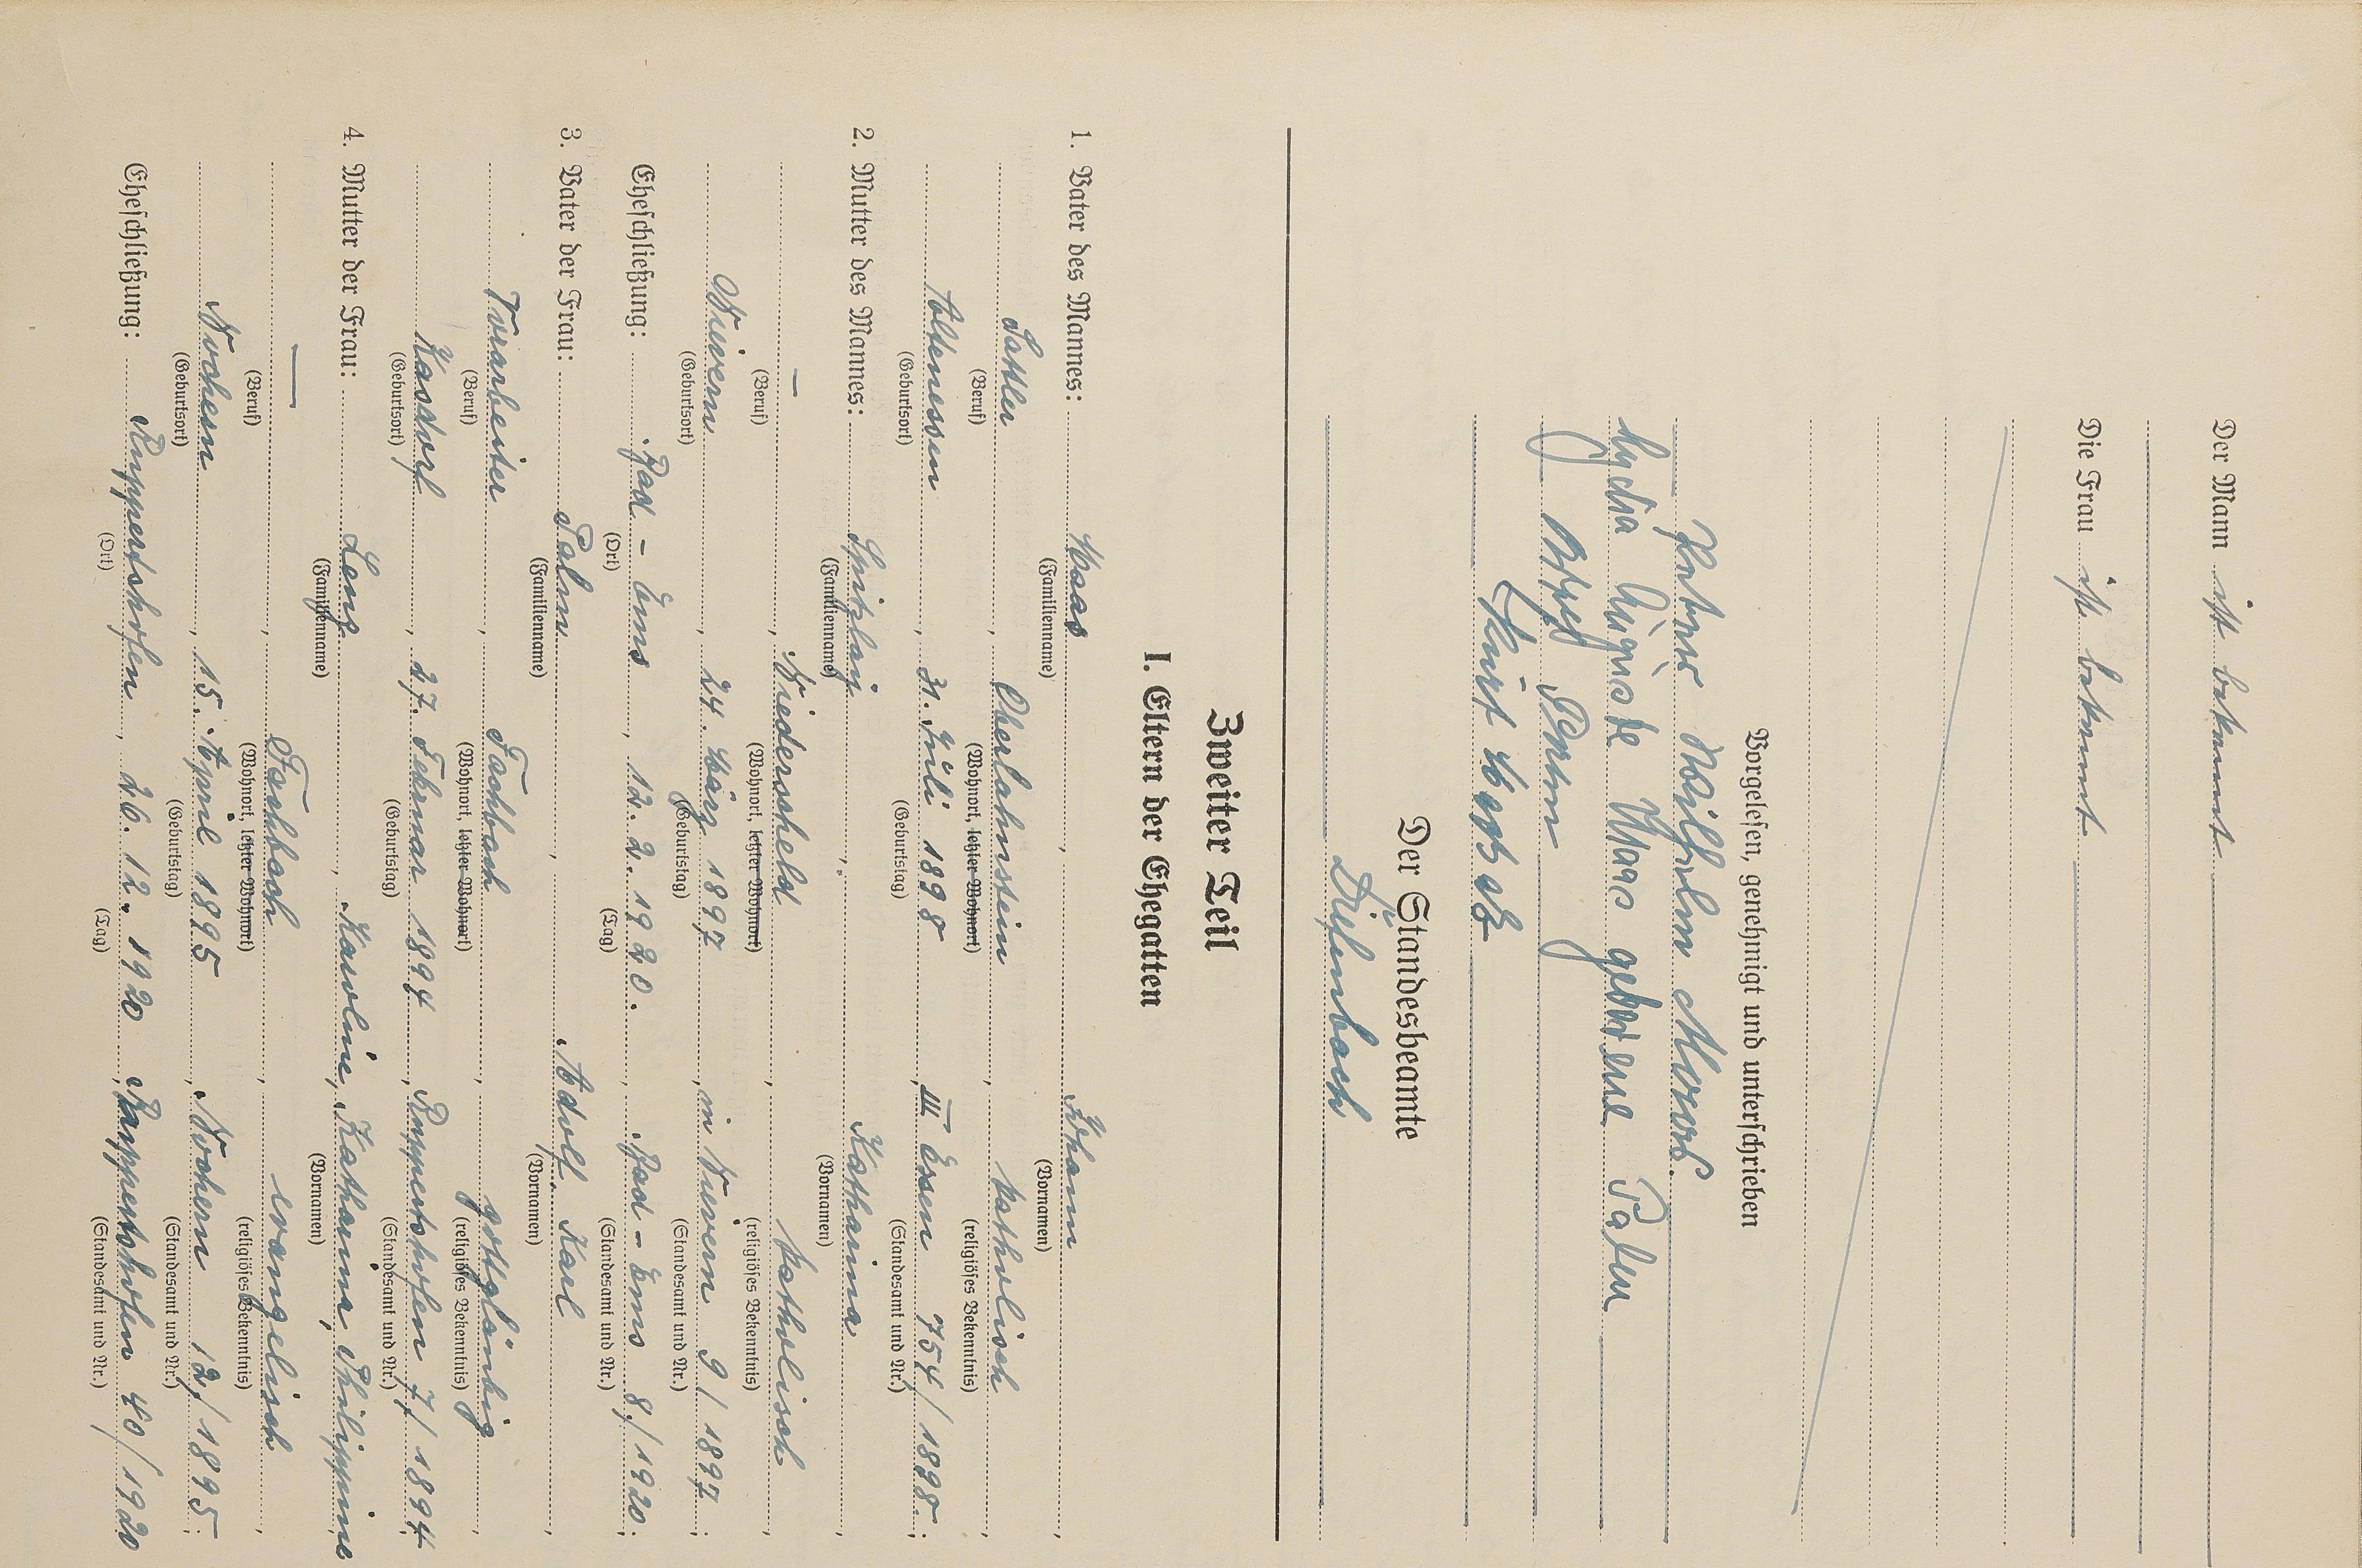 Der Mann ist bekannt
Die Frau ist bekannt
Vorgelesen, genehmigt und unterschrieben
Wilhelm
Lydia Auguste Maas geborene Palm
Palm
Kurt
Der Standesbeamte
Zweiter Teil
I. Eltern der Ehegatten
1. Vater des Mannes: Maas, Johann
(Familienname) (Vornamen)
Sattler, Oberlahnstein, katholisch,
(Beruf) (Wohnort, letzter Wohnort) (religiöses Bekenntnis)
Altenessen, 31. Juli 1898, III Essen 754/1898;
(Geburtsort) (Geburtstag) (Standesamt und Nr.)
2. Mutter des Mannes: Katharina,
(Familienname) (Vornamen)
—, Niederscheld, katholisch,
(Beruf) (Wohnort, letzter Wohnort) (religiöses Bekenntnis)
Nievern, 24. März 1897, in Nievern 9/1897;
(Geburtsort) (Geburtstag) (Standesamt und Nr.)
Eheschließung: Bad-Ems, 12. 2. 1920., Bad-Ems 8/1920;
(Ort) (Tag) (Standesamt und Nr.)
3. Vater der Frau: Palm, Adolf Karl,
(Familienname) (Vornamen)
Vorarbeiter, Fachbach, gottgläubig,
(Beruf) (Wohnort, letzter Wohnort) (religiöses Bekenntnis)
Kasdorf, 27. Februar 1894, Ruppertshofen 7/1894;
(Geburtsort) (Geburtstag) (Standesamt und Nr.)
4. Mutter der Frau: Lenz, Karoline, Katharina, Philippine
(Familienname) (Vornamen)
—, Fachbach, evangelisch,
(Beruf) (Wohnort, letzter Wohnort) (religiöses Bekenntnis)
Nochern, 15. April 1895, Nochern 12/1895;
(Geburtsort) (Geburtstag) (Standesamt und Nr.)
Eheschließung: Ruppertshofen, 26. 12. 1920, Ruppertshofen 40/1920
(Ort) (Tag) (Standesamt und Nr.)